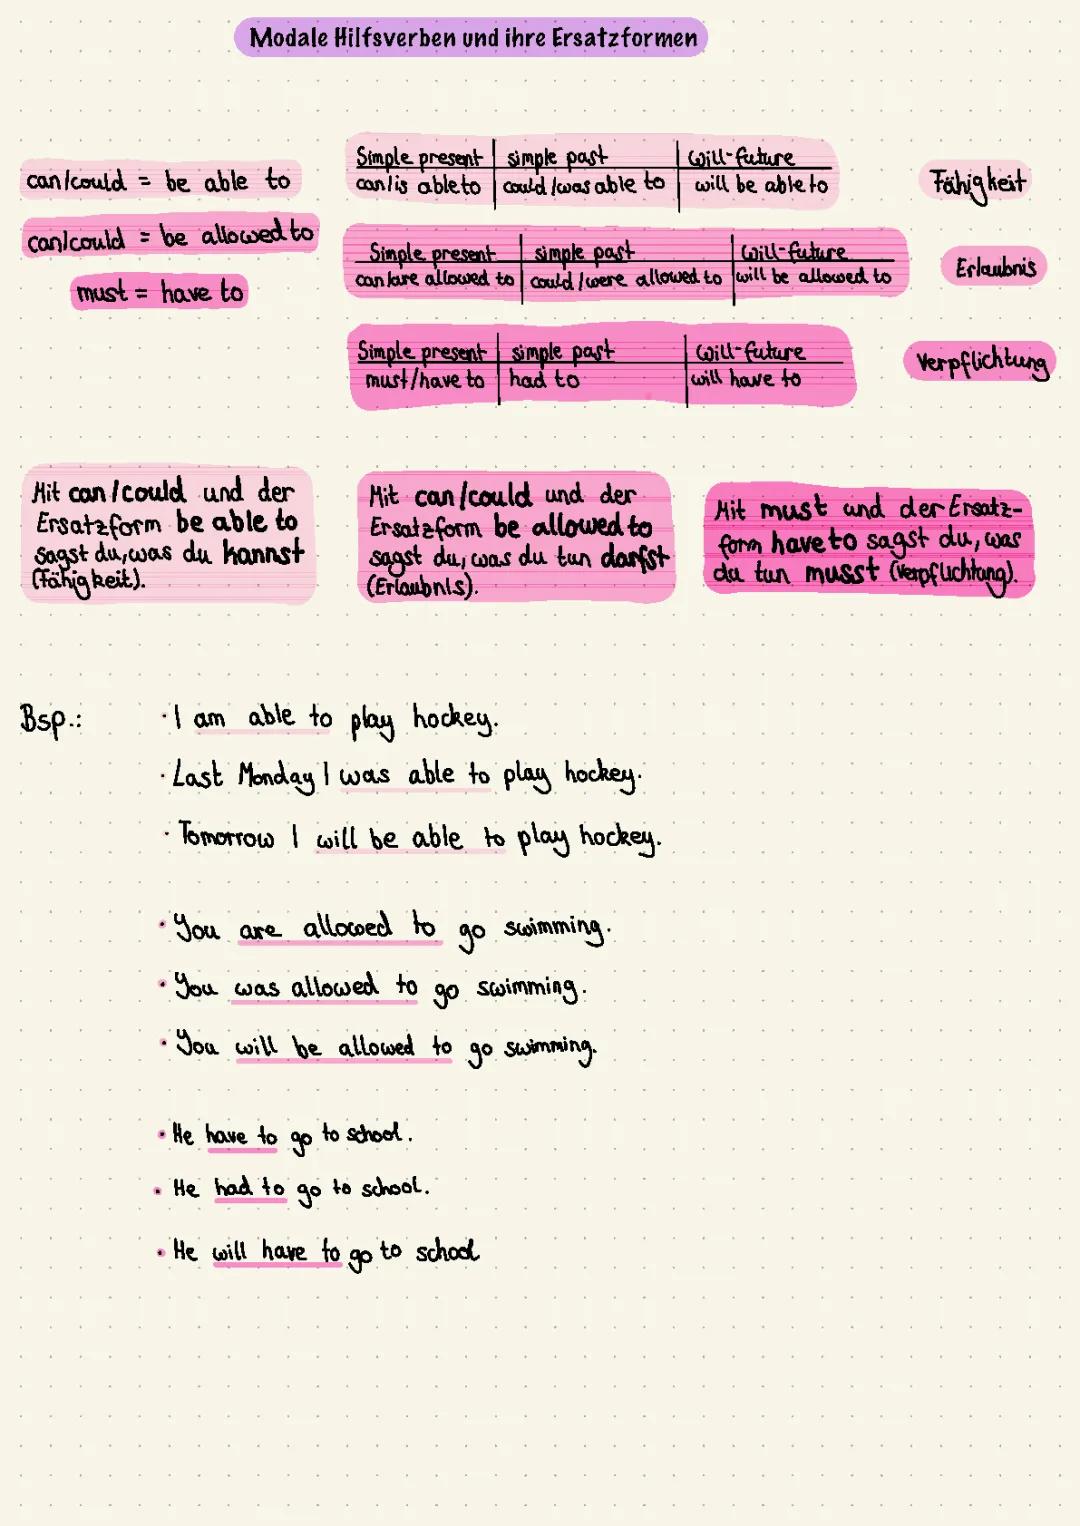 Modale Hilfsverben und ihre Ersatzformen
can/could = be able to
can/could = be allowed to
must = have to
Simple present | simple past | will-future
can/is able to | could/was able to | will be able to
Fähigkeit
Simple present | simple past | will-future
can/are allowed to | could/were allowed to | will be allowed to
Erlaubnis
Simple present | simple past | will-future
must/have to | had to | will have to
Verpflichtung
Mit can/could und der
Ersatzform be able to
sagst du, was du kannst
(Fähigkeit).
Mit can/could und der
Ersatzform be allowed to
sagst du, was du tun darfst
(Erlaubnis).
Mit must und der Ersatz-
form have to sagst du, was
du tun musst (Verpflichtung).
Bsp.:
· I am able to play hockey.
· Last Monday I was able to play hockey.
· Tomorrow I will be able to play hockey.
· You are allowed to go swimming.
· You was allowed to go swimming.
· You will be allowed to go swimming.
· He have to go to school.
· He had to go to school.
· He will have to go to school